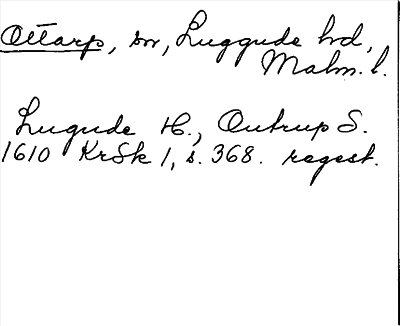 Ottarp, sn, Luggude hd,
Malm. l.
Lugude H., Outrup S.
1610 KrSk 1, s. 368. regest.